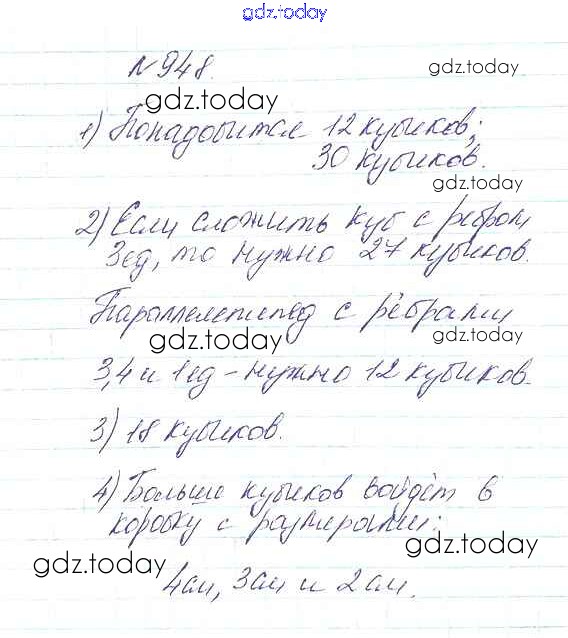 gdz.today
№ 948.
gdz.today
gdz.today
1) Понадобится 12 кубиков;
30 кубиков.
gdz.today
2) Если сложить куб с ребром
3 ед, то нужно 27 кубиков.
Параллелепипед с рёбрами
gdz.today
gdz.today
3,4 и 1 ед - нужно 12 кубиков.
3) 18 кубиков.
4) Больше кубиков войдёт в
коробку с размерами:
gdz.today
gdz.today
4см, 3см и 2см.